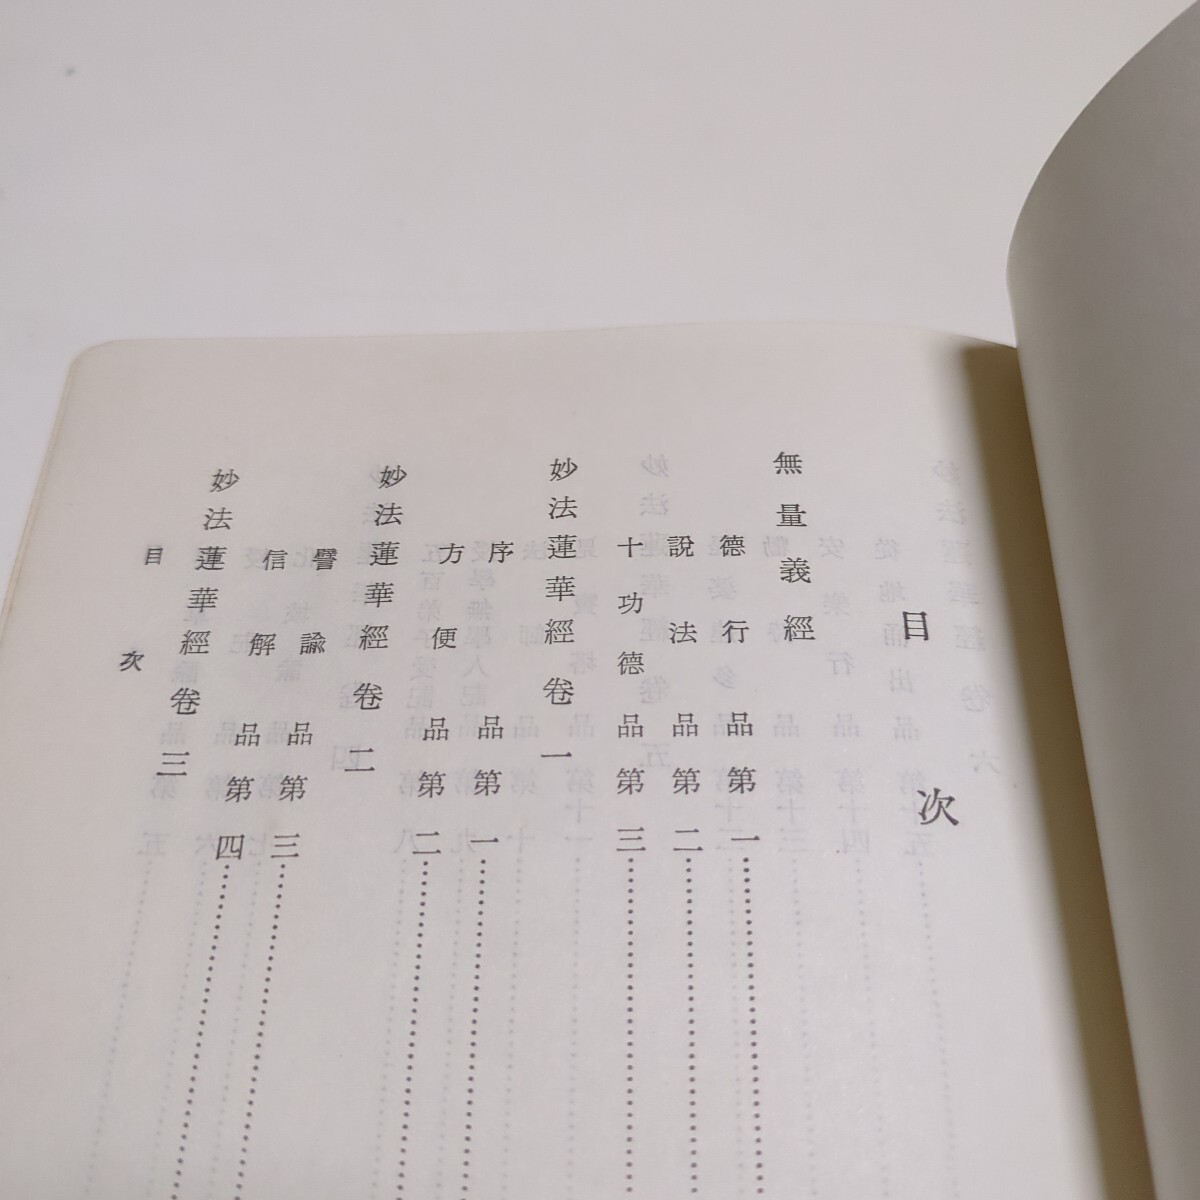 目次
無量義經
德行品第一
說法品第二
十功德品第三
妙法蓮華經卷一
序品第一
方便品第二
妙法蓮華經卷二
譬諭品第三
信解品第四
妙法蓮華經卷三
目次